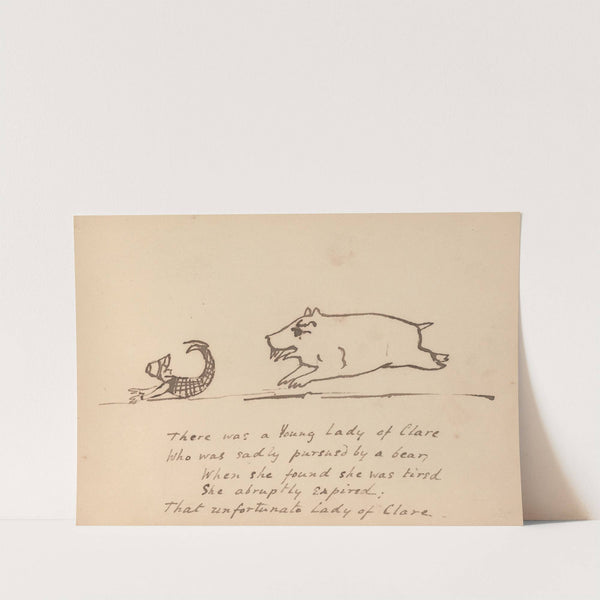 There was a Young Lady of Clare
Who was sadly pursued by a bear,
When she found she was tired
She abruptly expired;
That unfortunate Lady of Clare.